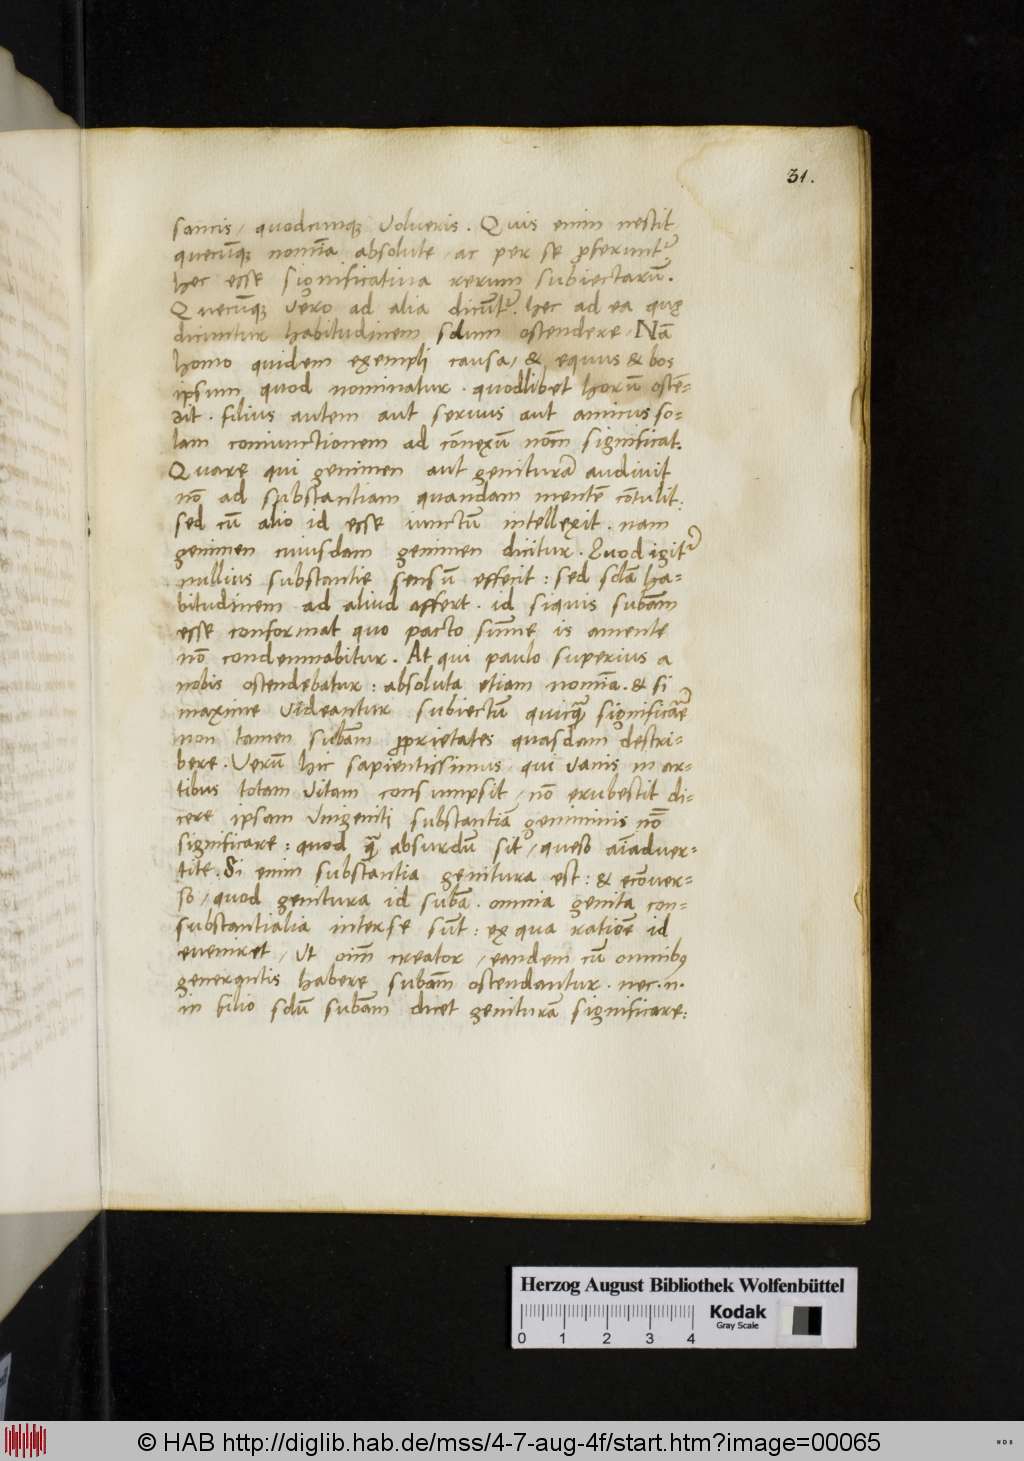 31.
sancis, quodcunqꝫ volueris. Quis enim nescit
quecūqꝫ nomīa absolute, ac per se ꝓferuntᷣ
hec esse significativa rerum subiectarū.
Quecūqꝫ vero ad alia dicūtᷣ. hec ad ea quę
dicuntur habitudinem solum ostendere. Nā
homo quidem exempli causa, & equus & bos
ipsum quod nominatur. quodlibet horū ostē=
dit. filius autem aut servus aut amicus so=
lam coniunctionem ad cōnexū nom̄ significat.
Quare qui genimen aut geniturā audivit
nō ad substantiam quandam mentē cōtulit.
sed cū alio id esse iunctū intellexit. nam
genimen cuiusdam genimen dicitur. Quod igitᷣ
nullius substantie sensū effecit: sed solā ha=
bitudinem ad aliud affert. id siquis subām
esse conformat quo pacto sūme is amente
nō condemnabitur. At qui paulo superius a
nobis ostendebatur: absoluta etiam nomīa. & si
maxime videantur subiectū quicqᷓ significāe
non tamen subām ꝓprietates quasdam descri=
bere. Verū hic sapientissimus, qui vanis in ar=
tibus totam vitam consumpsit, nō erubescit di=
cere ipsam Unigeniti substantiā geniminis nōē
significare: quod qᷓ absurdū sit, queso aīadver=
tite. Si enim substantia genitura est: & ecōver=
so, quod genitura id subā. omnia genita con=
substantialia interse sūt: ex qua ratiōe id
eveniret, Ut oīm creator, eandem cū omnibꝰ
generantis habere subām ostendantur. nec. n.
in filio solū subām dicet genituram significare:
Herzog August Bibliothek Wolfenbüttel
0 1 2 3 4
Kodak
Gray Scale
© HAB http://diglib.hab.de/mss/4-7-aug-4f/start.htm?image=00065